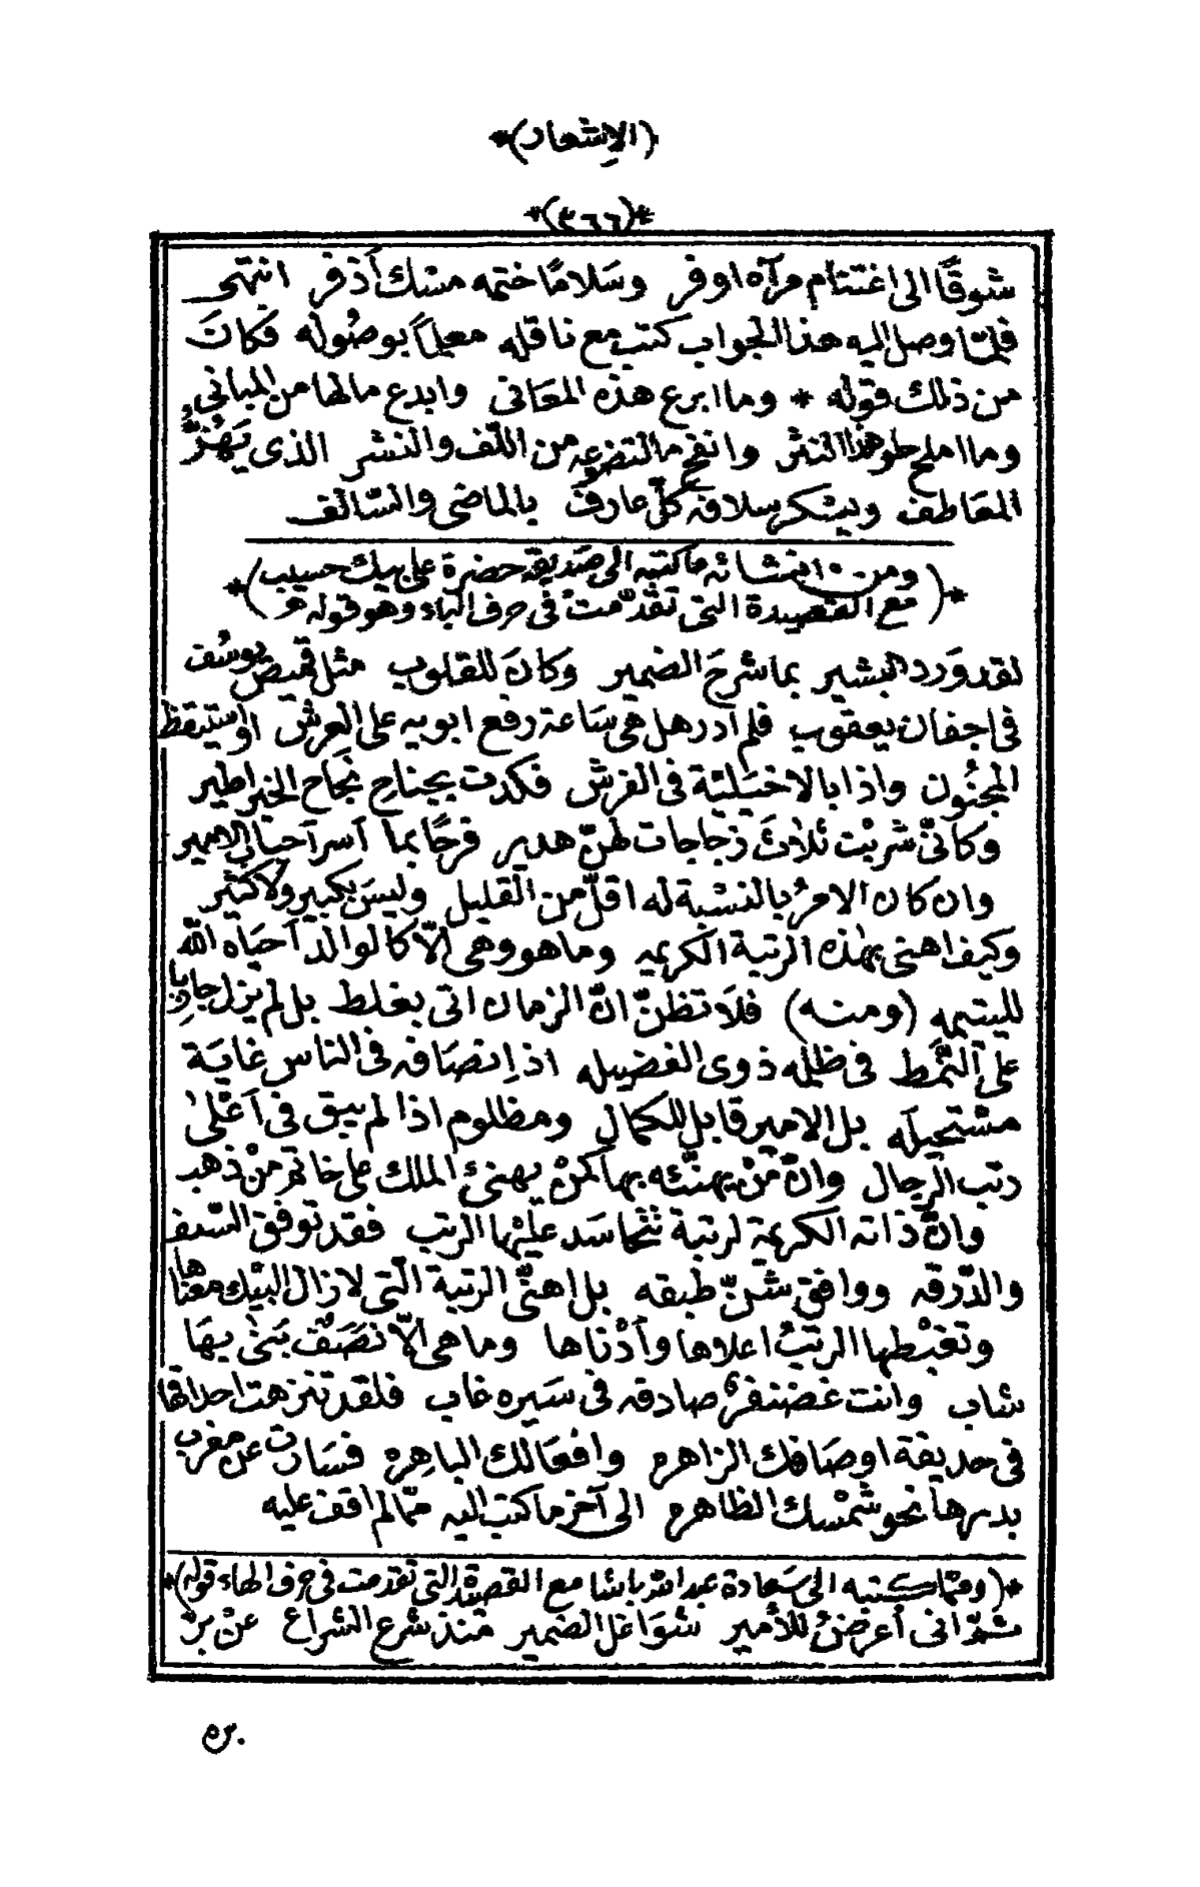 (الإشعار)*
*(٣٦٦)*
شوقًا الى اغتنام مرآه اوفر وسَلامًا ختمه مسك أذفر انتهى
فلمّا وصل اليه هذا الجواب كتب مع ناقله معلماً بوصُوله فكانَ
من ذلك قوله * وما ابرع هذه المعَانى وابدع مالها من المبانى
وما املح حلو هذا النثر وانفح ما تضوعه من اللّف والنشر الذى يَهُزُّ
المعَاطف ويشكر سلافه كلّ عارفٍ بالماضى والسّالف
*(ومن انشائه ما كتبه الى صَديقه حضرة على بيك حسيب
مع القصيدة التى تقدّمتْ فى حرف الباء وهو قوله)*
لقد وَرد البشير بما شرحَ الضمير وكانَ للقلوب مثل قميص يوسُف
فى اجفان يعقوب فلم ادر هل هى سَاعة رفع ابويه على العرش او استيقظ
المجنُون واذا بالاخيَلية فى الفرش فكدت بجناحِ نجَاح الخبر اطير
وكأنّى شربْت ثلاثَ زجاجات لهنّ هدير فرحًا بما اسر احبابى الامير
وان كان الامرُ بالنسْبة له اقلّ من القليل وليسَ بكبير ولا كثير
وكيف اهنى بهٰذه الرتبة الكريمه وما هو وهى الّا كالوالد احيَاه اللّه
لليتيمه (ومنه) فلَا تظنّ انّ الزمان اتى بغلط بل لم يزل جاريا
على النّمط فى ظلمه ذوى الفضيله اذ اِنصَافه فى الناس غايَة
مسْتحيلَه بل الامير قابل للكمال ومظلوم اذا لم يبق فى اَعْلىٰ
رتب الرجال وانّ مَنْ يهنّئه بها كمنْ يهنئ الملك على خاتم منْ ذهب
وانّ ذاته الكريمة لرتبة تتحاسَد عليْها الرتب فقد توفق السّيف
والدّرقه ووافق شنّ طبقه بل اهنّى الرتبة الّتى لازال البيْك معناها
وتغبْطها الرتبُ اعلاها وأدْناها وما هى الّا نصَفٌ بَنىٰ بها
شاب وانت غضنفرٌ صادفه فى سَيره غاب فلقد تنزهت احداقها
فى حديقة اوصَافك الزاهره وافعَالك الباهِره فسَارت عن مغرب
بدرها نحو شمْسك الظاهره الى آخر ما كتب اليه ممّا لم اقف عليه
*(وممّا كتبه الى سَعادة عبد الله باشا مع القصيدة التى تقدمت فى حرف الهاء قوله)*
ثمّ انى أعرضُ للأمير شوَاغل الضمير منذ شرع الشراع عنْ برّ